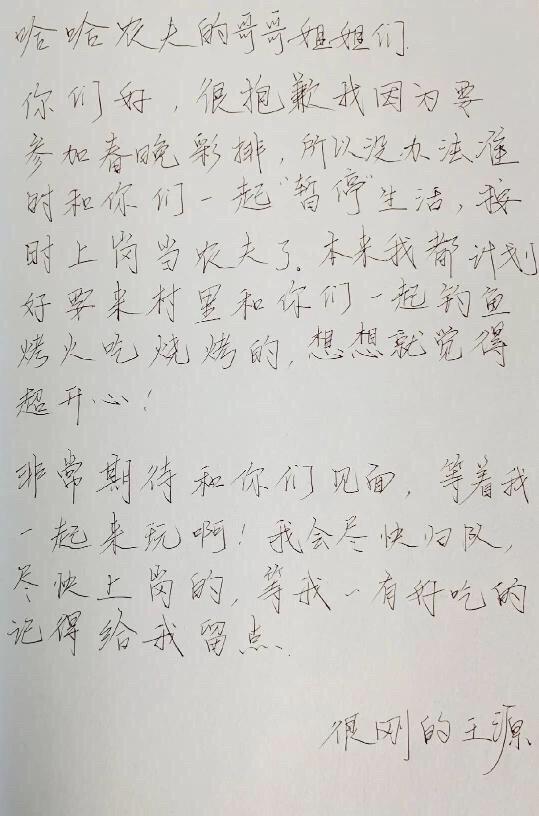 哈哈农夫的哥哥姐姐们.
你们好，很抱歉我因为要
参加春晚彩排，所以没办法准
时和你们一起“暂停”生活，按
时上岗当农夫了。本来我都计划
好要来村里和你们一起钓鱼
烤火吃烧烤的，想想就觉得
超开心！
非常期待和你们见面，等着我
一起来玩啊！我会尽快归队，
尽快上岗的，等我一有好吃的
记得给我留点.
很刚的王源